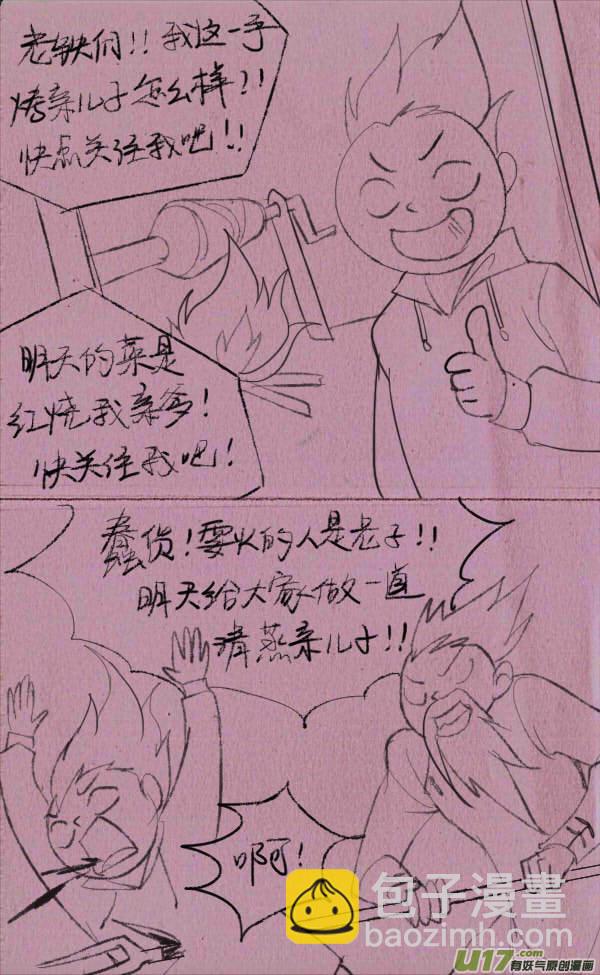 老铁们!!我这一手
烤亲儿子怎么样?!
快点关注我吧!!
明天的菜是
红烧我亲爹!
快关注我吧!
蠢货!要火的人是老子!!
明天给大家做一道
清蒸亲儿子!!
啊!
包子漫畫
baozimh.com
U17.com
有妖气原创漫画